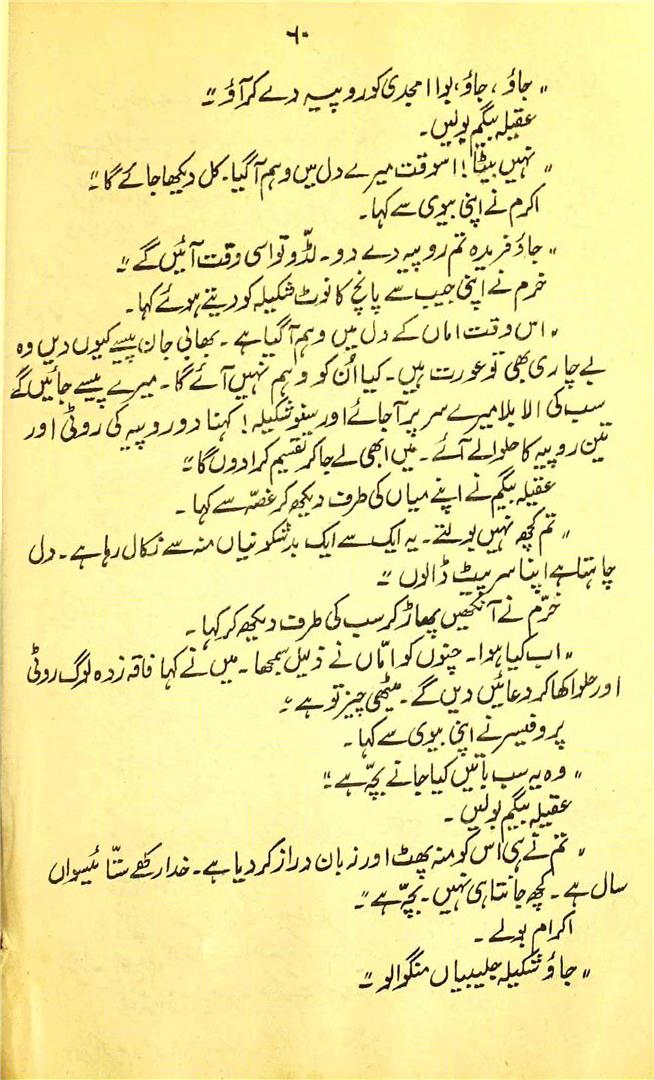 ۶۰
" جاؤ، جاؤ، بوا امجدی کو روپیہ دے کر آؤ "
عقیلہ بیگم بولیں۔
" نہیں بیٹا! اسوقت میرے دل میں وہم آگیا۔ کل دیکھا جائے گا "
اکرم نے اپنی بیوی سے کہا۔
" جاؤ فریدہ تم روپیہ دے دو۔ لڈّو تو اسی وقت آئیں گے "
خرم نے اپنی جیب سے پانچ کا نوٹ شکیلہ کو دیتے ہوئے کہا۔
" اس وقت اماں کے دل میں وہم آگیا ہے۔ بھابی جان پیسے کیوں دیں وہ
بے چاری بھی تو عورت ہیں۔ کیا اُن کو وہم نہیں آئے گا۔ میرے پیسے جائیں گے
سب کی الا بلا میرے سر پر آجائے اور سنو شکیلہ! کہنا دو روپیہ کی روٹی اور
تین روپیہ کا حلوا لے آئے۔ میں ابھی لے جاکر تقسیم کرا دوں گا "
عقیلہ بیگم نے اپنے میاں کی طرف دیکھ کر غصّہ سے کہا۔
" تم کچھ نہیں بولتے۔ یہ ایک سے ایک بدشگونیاں منہ سے نکال رہا ہے۔ دل
چاہتا ہے اپنا سر پیٹ ڈالوں "
خرّم نے آنکھیں پھاڑ کر سب کی طرف دیکھ کر کہا۔
" اب کیا ہوا۔ چنوں کو امّاں نے ذلیل سمجھا۔ میں نے کہا فاقہ زدہ لوگ روٹی
اور حلوا کھا کر دعائیں دیں گے۔ میٹھی چیز تو ہے "
پروفیسر نے اپنی بیوی سے کہا۔
" وہ یہ سب باتیں کیا جانے بچّہ ہے "
عقیلہ بیگم بولیں۔
" تم نے ہی اس کو منہ پھٹ اور زبان دراز کر دیا ہے۔ خدا رکھے ستّائیسواں
سال ہے۔ کچھ جانتا ہی نہیں۔ بچّہ ہے "
اکرام بولے۔
" جاؤ شکیلہ جلیبیاں منگوالو "